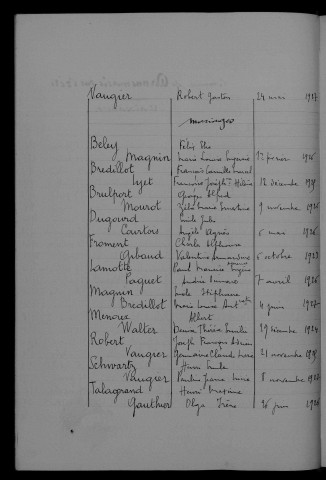 Vaugier Robert Gaston 24 mai 1927
mariages
Beley Félix Elie
Magnin Marie Louise Eugénie 12 février 1926
Bredillot Francis Camille Marcel
Lyet Françoise Joseph Hélène 12 décembre
Brulport Georges Alfred
Mourot 9 novembre 1926
Dugourd Emile Jules
Courtois Angèle Agnès 6 mai 1926
Froment Charles Alphonse
Orband Valentine 6 octobre 1922
Lamotte Paul Maurice Eugène
Paquet Andrée 7 avril 1926
Magnin Stéphane
Bredillot Marie Louise 4 juin 1927
Menoux Albert
Walter Thérèse 29 décembre 1924
Robert Joseph François Adrien
Vaugier Germaine 21 novembre 1925
Schwartz Henri Emile
Vaugier Pauline Jeanne Marie 8 novembre
Talagrand Henri Maxime
Gauthier Olga Irène 26 juin 1926